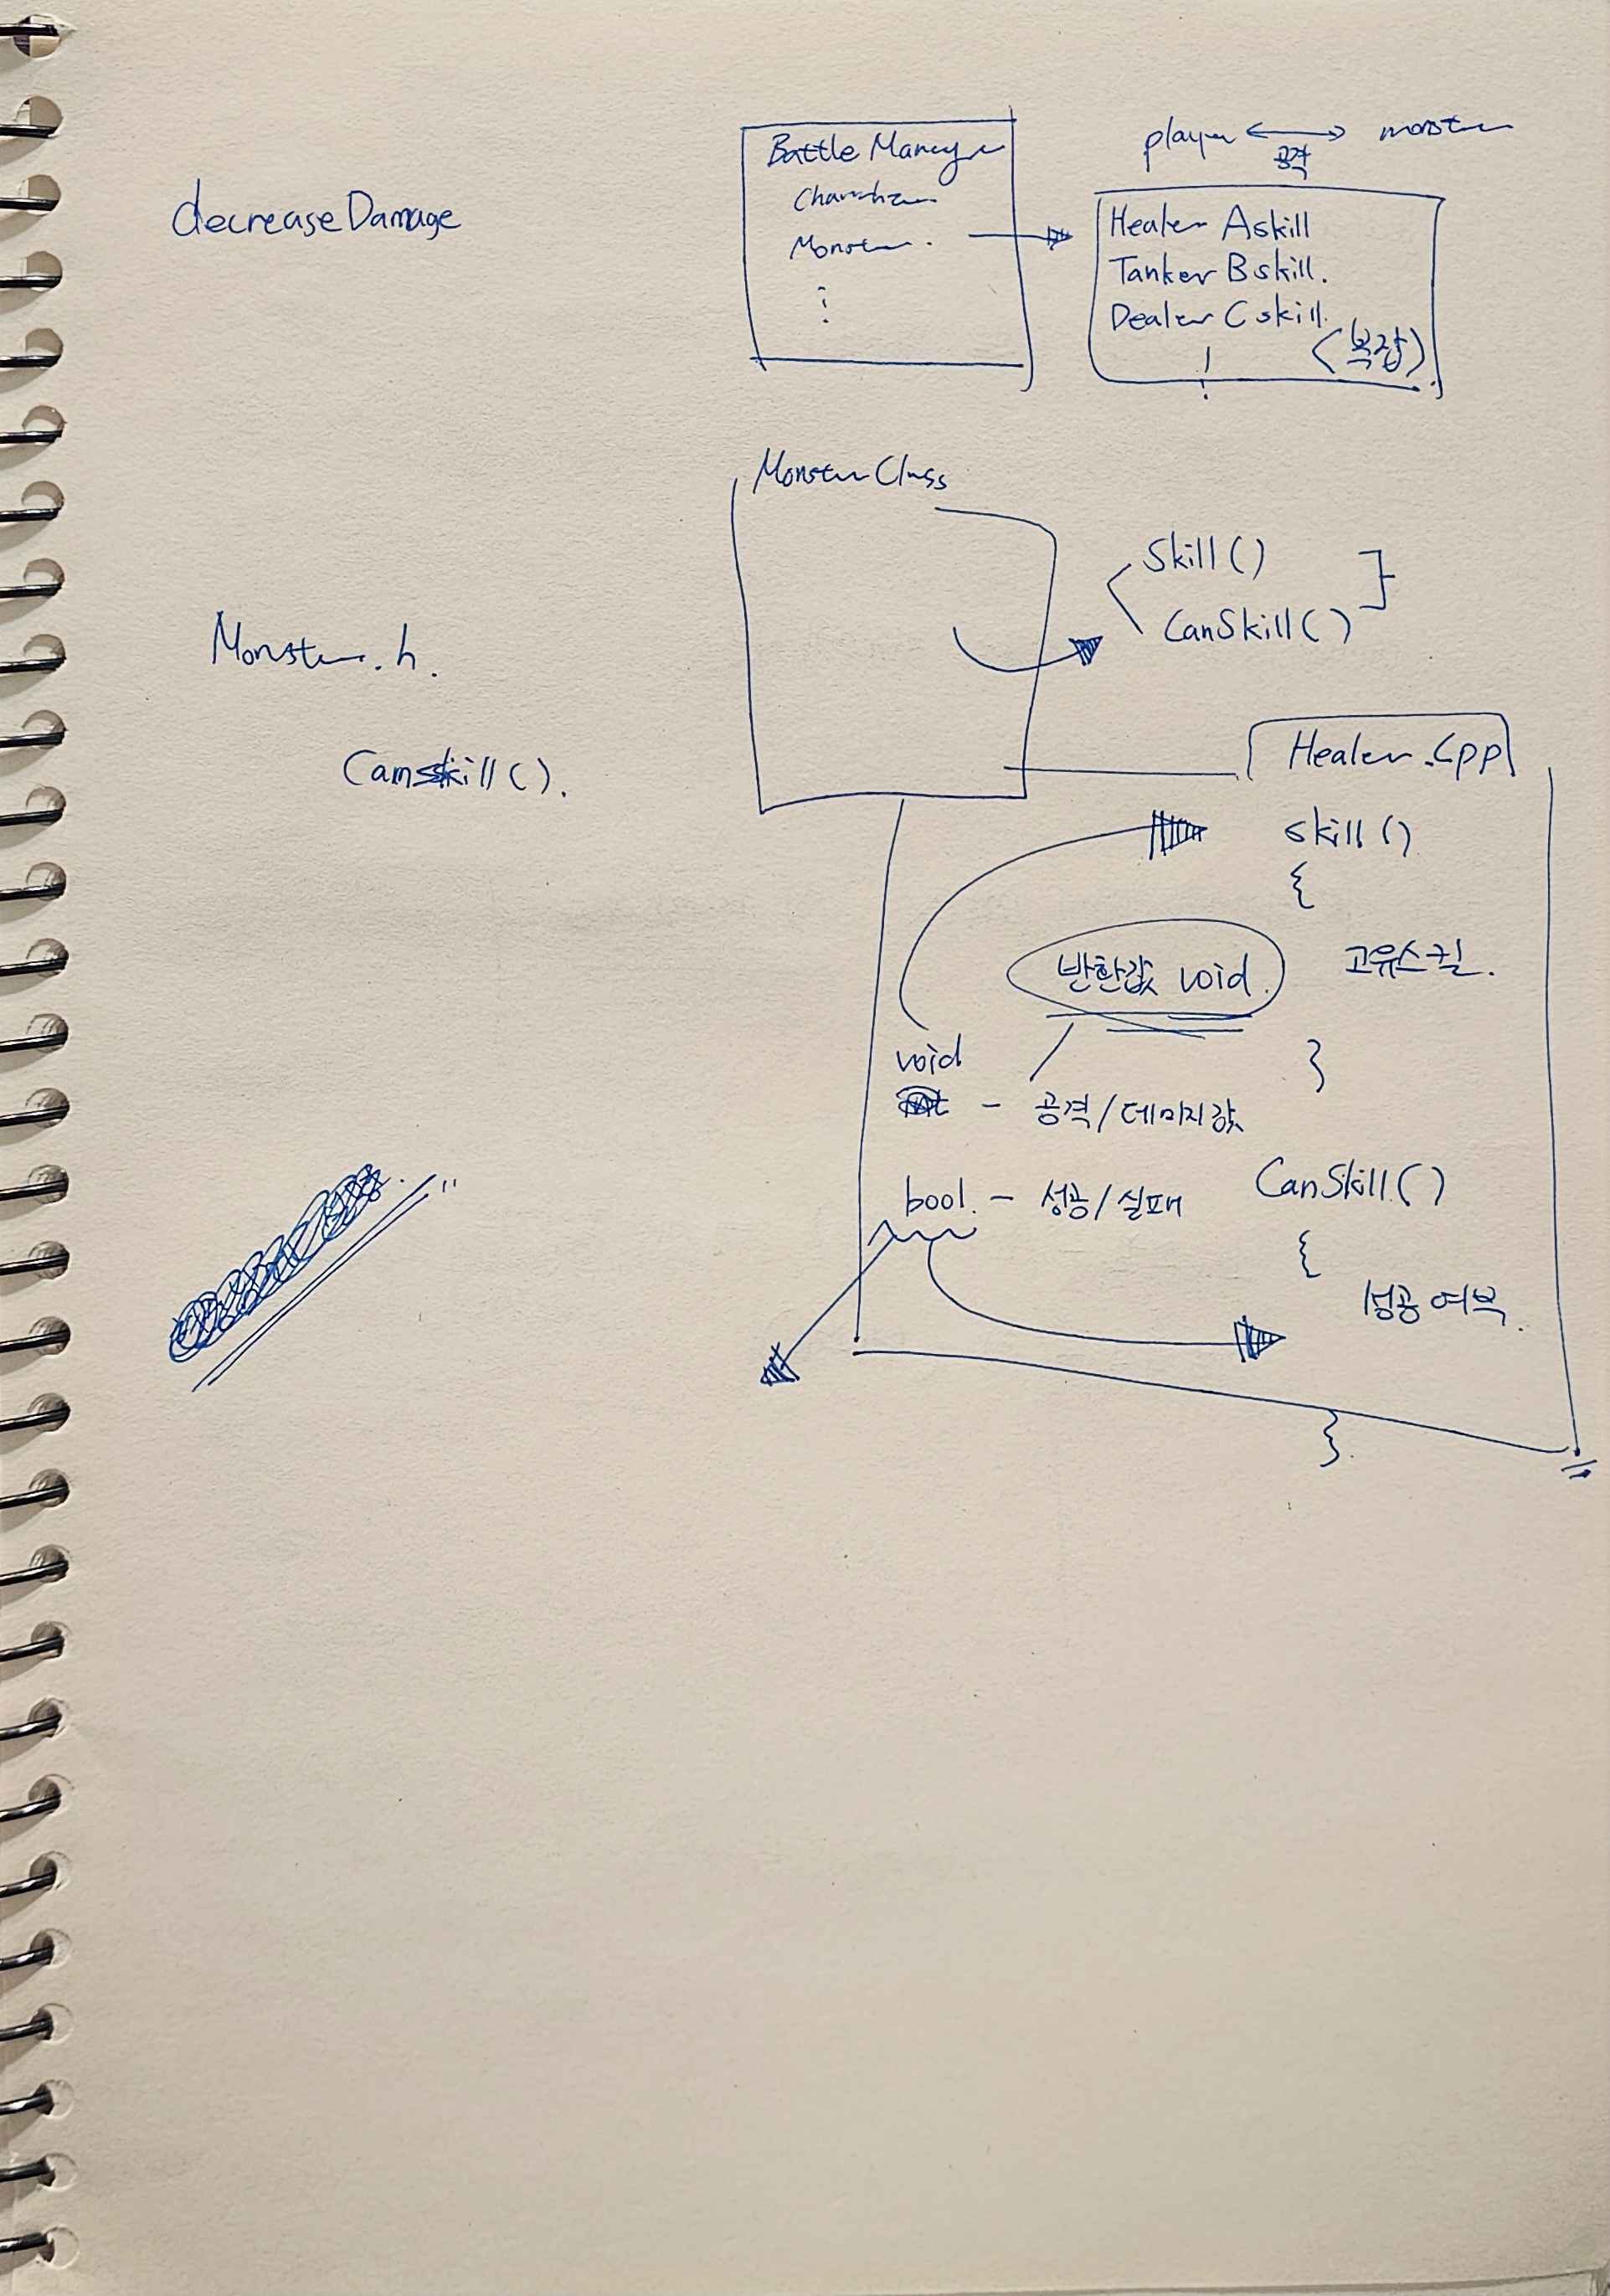 decreaseDamage
Battle Manager
Character
Monster.
player ↔ monster
공격
Healer Askill
Tanker Bskill.
Dealer Cskill.
(복잡)
Monster Class
Skill()
CanSkill()
Monster.h.
Canskill().
Healer.Cpp
skill()
{
반환값 void.
고유스킬.
}
void
int - 공격/데미지값
bool. - 성공/실패
CanSkill()
{
성공 여부.
}